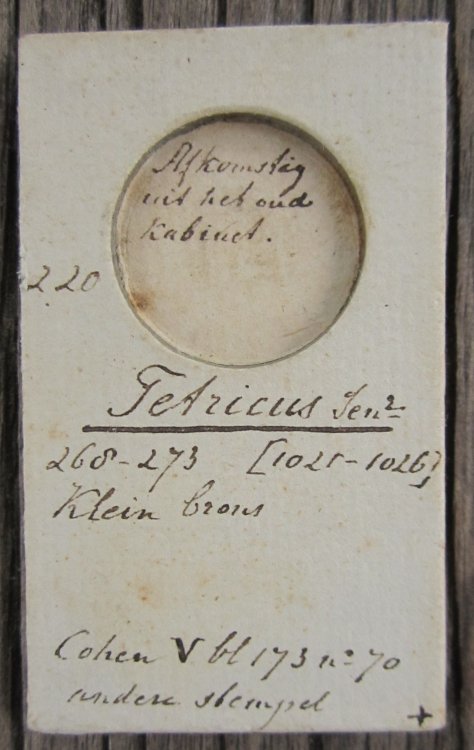 Afkomstig
uit het oud
kabinet.
220
Tetricus Senr
268-273 [1021-1026]
Klein brons
Cohen V bl 173 no 70
andere stempel
+